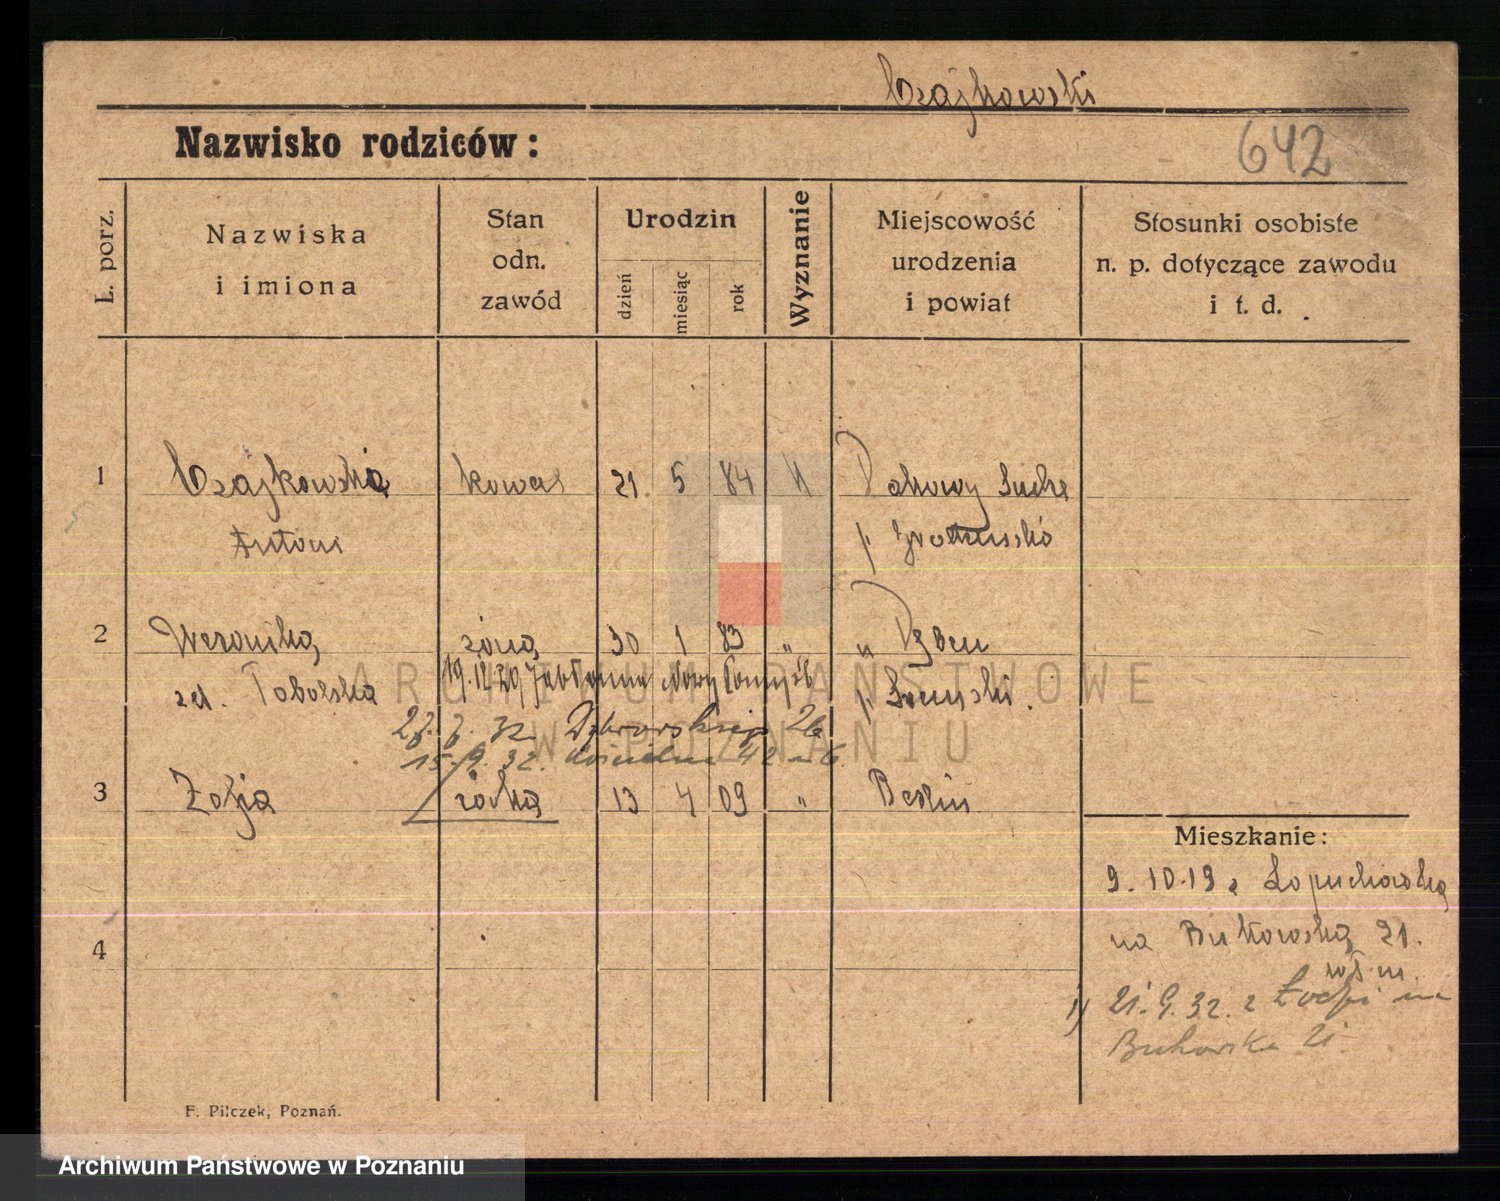 Czajkowski
Nazwisko rodziców:
642
L. porz.
Nazwiska
i imiona
Stan
odn.
zawód
Urodzin
dzień
miesiąc
rok
Wyznanie
Miejscowość
urodzenia
i powiat
Stosunki osobiste
n. p. dotyczące zawodu
i t. d.
1 Czajkowski kowal 21. 5 84 Suche
Antoni p.
2 Weronika żona 30 1 83 "
zd. Tobolska p. Śremski.
19.12.20, Jabłonna Nowy Tomyśl
27. 7. 32 Dąbrowskiego 26
15.9.32. Kościelna 42 m 6
3 Zofja córka 13 4 09 " Berlin
Mieszkanie:
9.10.19 z Łopuchowska
na Bukowska 21.
4
21.9.32. z Łodzi na
Bukowska 21
F. Pilczek, Poznań.
ARCHIWUM PAŃSTWOWE
W POZNANIU
Archiwum Państwowe w Poznaniu